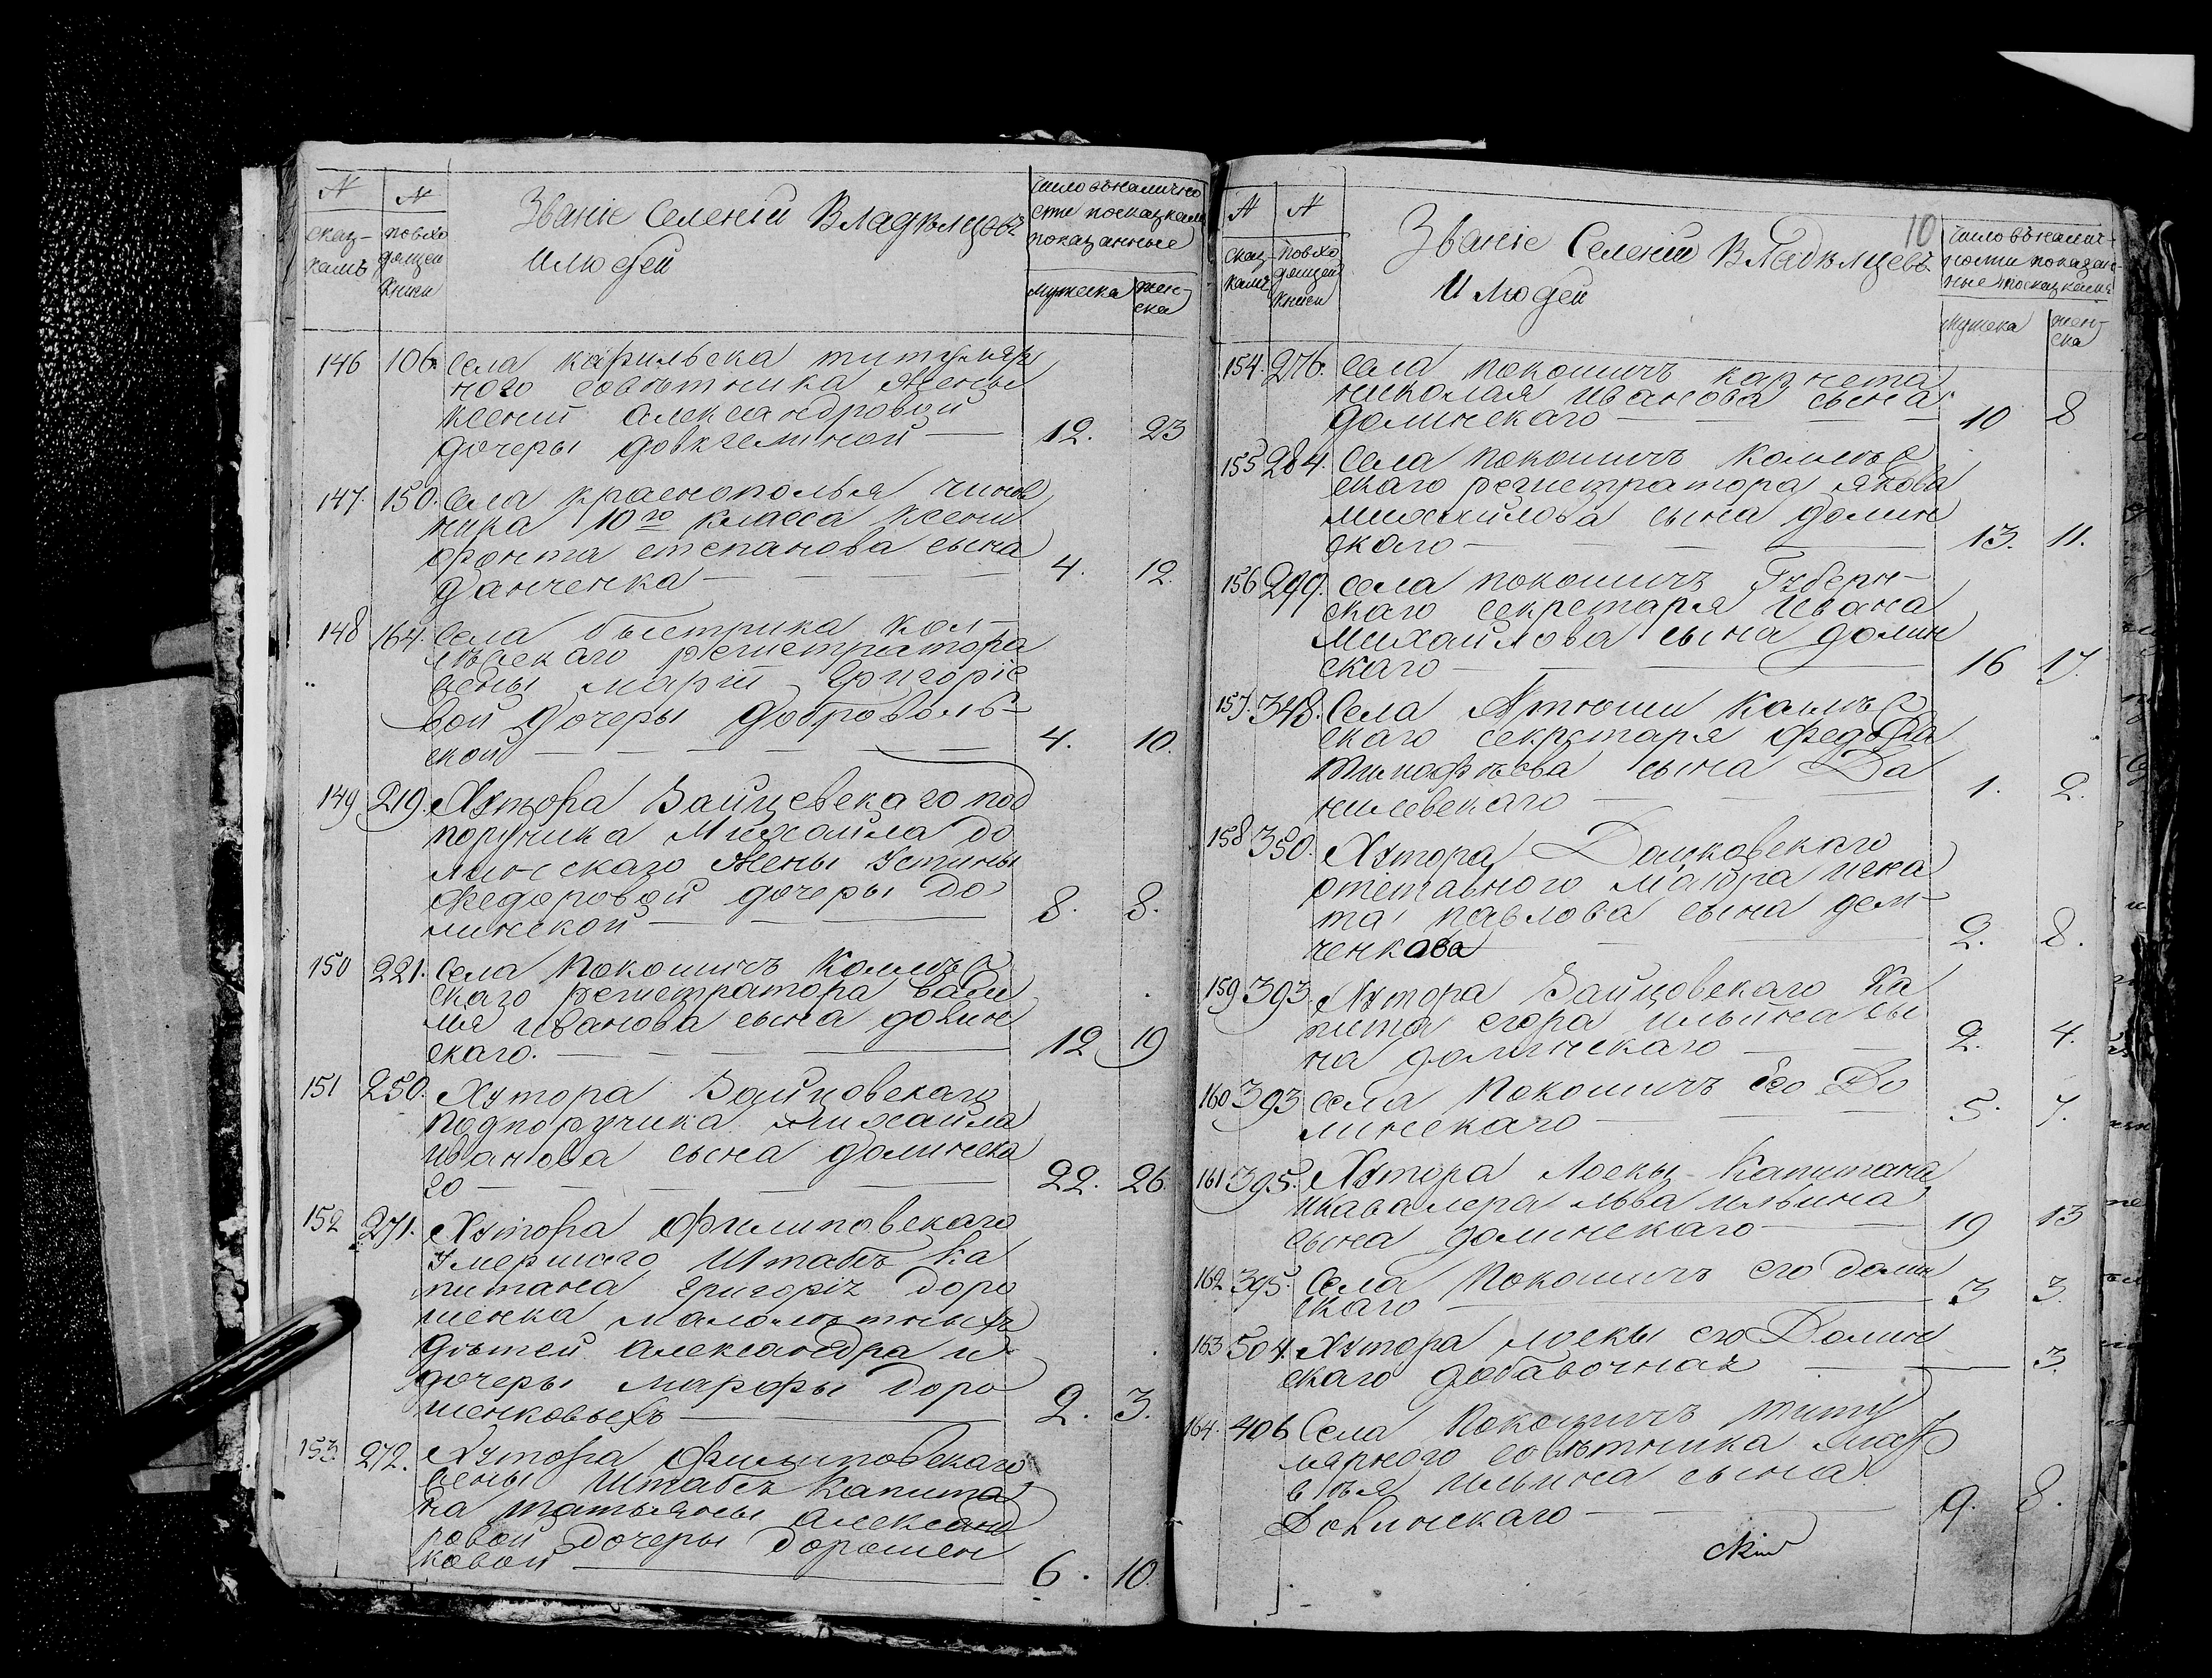 № сказкамъ
№ по входящей книги
Званіе Селеній Владѣльцовъ
И людей
число въ наличности по сказкамъ показанные
мужеска женска
146 106. Села Карильска титуляр
ного совѣтника жены
Ксеніи Александровой
дочеры Довкгелиной 12. 23
147 150. Села Краснополья чинов
ника 10го класса Ксено
фонта степанова сына
Данченка 4. 12.
148 164. Села быстрика Кол-
лѣжскаго регистратора
жены маріи Григоріе
вой дочеры Доброволь-
ской 4. 10.
149 219. Хутора Зайцевскаго под
поручика Михаила До
линскаго жены Устины
Федоровой дочеры До
линской 8. 8.
150 221. Села Покошичъ Коллѣж
скаго регистратора Васи
лія иванова сына долин
скаго. 12 19
151 250. Хутора Зайцовскаго
подпоручика михаила
иванова сына долинска
го 22. 26.
152 271. Хутора Филиповскаго
умершаго Штабъ Ка
питана григорія доро
шенка малолѣтныхъ
дѣтей александра и
дочеры марфы доро
шенковыхъ 2. 3.
153. 272. Хутора Филиповскаго
жены Штабъ Капита
на татьяны Александ
ровой дочеры дорошен
ковой 6. 10.
10
№ сказкамъ
№ по входящей книги
Званіе Селеній Владѣлцевъ
И людей
число въ наличности показанные по сказкамъ
мужеска женска
154. 276. Села покошичъ карнета
николая иванова сына
долинскаго 10 8
155 284. Села покошичъ Коллѣж
скаго регистратора якова
михайлова сына долин
скаго 13. 11.
156 299. села покошичъ Губерн-
скаго секретаря ивана
михайлова сына долин
скаго 16 17.
157. 348. Села Атюши Коллѣж
скаго секретаря федора
тимофѣева сына Да
нилевскаго 1. 2.
158 350. Хутора Дашковскаго
отставного маіора игна
та павлова сына дем-
ченкова 2. 8.
159 393. Хутора Зайцовскаго Ка
пита егора ильина сы
на долинскаго 2. 4.
160 393 села Покошичъ его До
линскаго 5. 7.
161 395. Хутора Лоски Капитана
икавалера льва ильина
сына долинскаго 19 13
162 395. Села Покошичъ его долин
скаго 3 3
163 504. Хутора лоски его Долин
скаго добавочная 3.
164. 406 Села Покошичъ титу
лярного совѣтника мат
вѣя ильина сына
Долинскаго 9. 8.